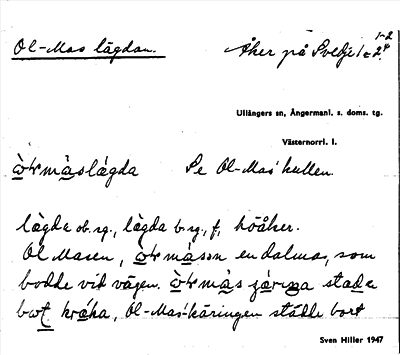 Ol-Mas lägdan.
Åker på Svedje 1-2
1 2⁴
Ullångers sn, Ångermanl. s. doms. tg.
Västernorrl. l.
màslǻgda Se Ol-Mas'kullen.
lägda ob. sg., lägda b. sg., f, höåker.
Ol Masen, màsson en dalmas, som
bodde vid vägen. màs
kràka, Ol-Mas-käringen städde bort
Sven Hiller 1947